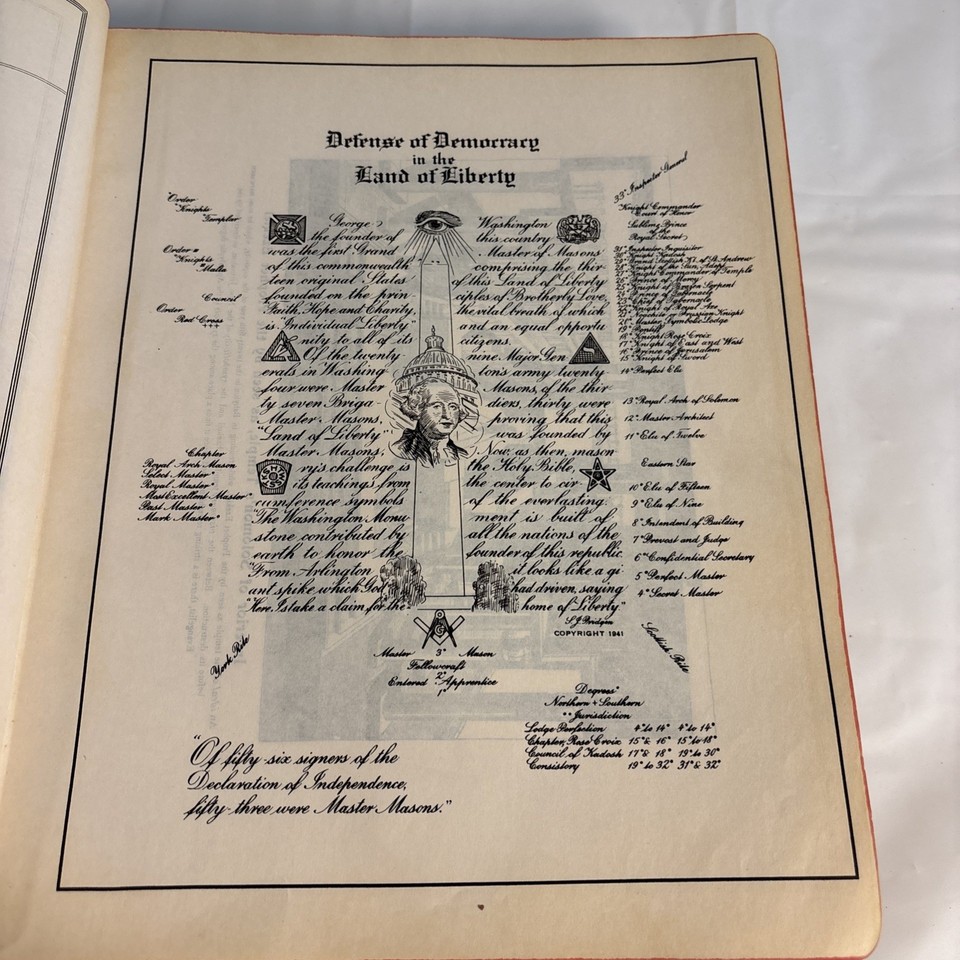 Defense of Democracy
in the
Land of Liberty
Order
Knights
Templar
Order
Knights
Malta
Council
Order
Red Cross
+++
Chapter
Royal Arch Mason
Select Master "
Royal Master "
Most Excellent Master "
Past Master "
Mark Master "
York Rite
George Washington
the founder of this country
was the first Grand Master of Masons
of this commonwealth comprising the thir
teen original States of this Land of Liberty
founded on the prin ciples of Brotherly Love,
Faith, Hope and Charity, the vital breath of which
is Individual Liberty" and an equal opportu
nity to all of its citizens.
Of the twenty nine Major Gen
erals in Washing ton's army twenty
four were Master Masons, of the thir
ty seven Briga diers, thirty were
Master Masons, proving that this
"Land of Liberty" was founded by
Master Masons, Now, as then, mason
ry's challenge is the Holy Bible,
its teachings from the center to cir
cumference symbols of the everlasting.
"The Washington Monu ment is built of
stone contributed by all the nations of the
earth to honor the founder of this republic.
"From Arlington it looks like a gi
ant spike which God had driven, saying
"Here I stake a claim for the home of Liberty."
S.J. Bridgen
COPYRIGHT 1941
G
Master 3° Mason
Fellowcraft
2°
Entered Apprentice
1°
33° Inspector General
Knight Commander
Court of Honor
Sublime Prince
of the
Royal Secret
31° Inspector Inquisitor
30° Knight Kadosh
18° Knight Rose Croix
17° Knight of East and West
16° Prince of Jerusalem
15° Knight of Sword
14° Perfect Elu
13° Royal Arch of Solomon
12° Master Architect
11° Elu of Twelve
Eastern Star
10° Elu of Fifteen
9° Elu of Nine
8° Intendent of Building
7° Provost and Judge
6° Confidential Secretary
5° Perfect Master
4° Secret Master
Scottish Rite
Degrees"
Northern & Southern
" " Jurisdiction
Lodge Perfection 4° to 14° 4° to 14°
Chapter, Rose Croix 15° & 16° 15° to 18°
Council of Kadosh 17° & 18° 19° to 30°
Consistory 19° to 32° 31° & 32°
"Of fifty six signers of the
Declaration of Independence,
fifty-three were Master Masons."